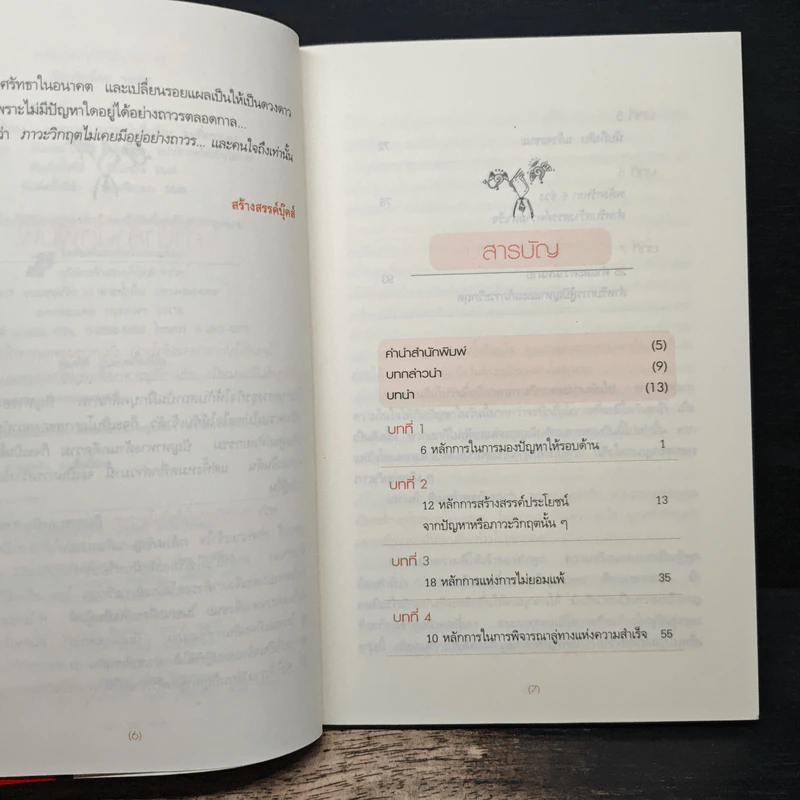 ศรัทธาในอนาคต และเปลี่ยนรอยแผลเป็นให้เป็นดวงดาว
เพราะไม่มีปัญหาใดอยู่ได้อย่างถาวรตลอดกาล...
ว่า ภาวะวิกฤตไม่เคยมีอยู่อย่างถาวร... และคนใจถึงเท่านั้น
สร้างสรรค์บุ๊คส์
(6)
สารบัญ
คำนำสำนักพิมพ์ (5)
บทกล่าวนำ (9)
บทนำ (13)
บทที่ 1
6 หลักการในการมองปัญหาให้รอบด้าน 1
บทที่ 2
12 หลักการสร้างสรรค์ประโยชน์ 13
จากปัญหาหรือภาวะวิกฤตนั้น ๆ
บทที่ 3
18 หลักการแห่งการไม่ยอมแพ้ 35
บทที่ 4
10 หลักการในการพิจารณาลู่ทางแห่งความสำเร็จ 55
(7)